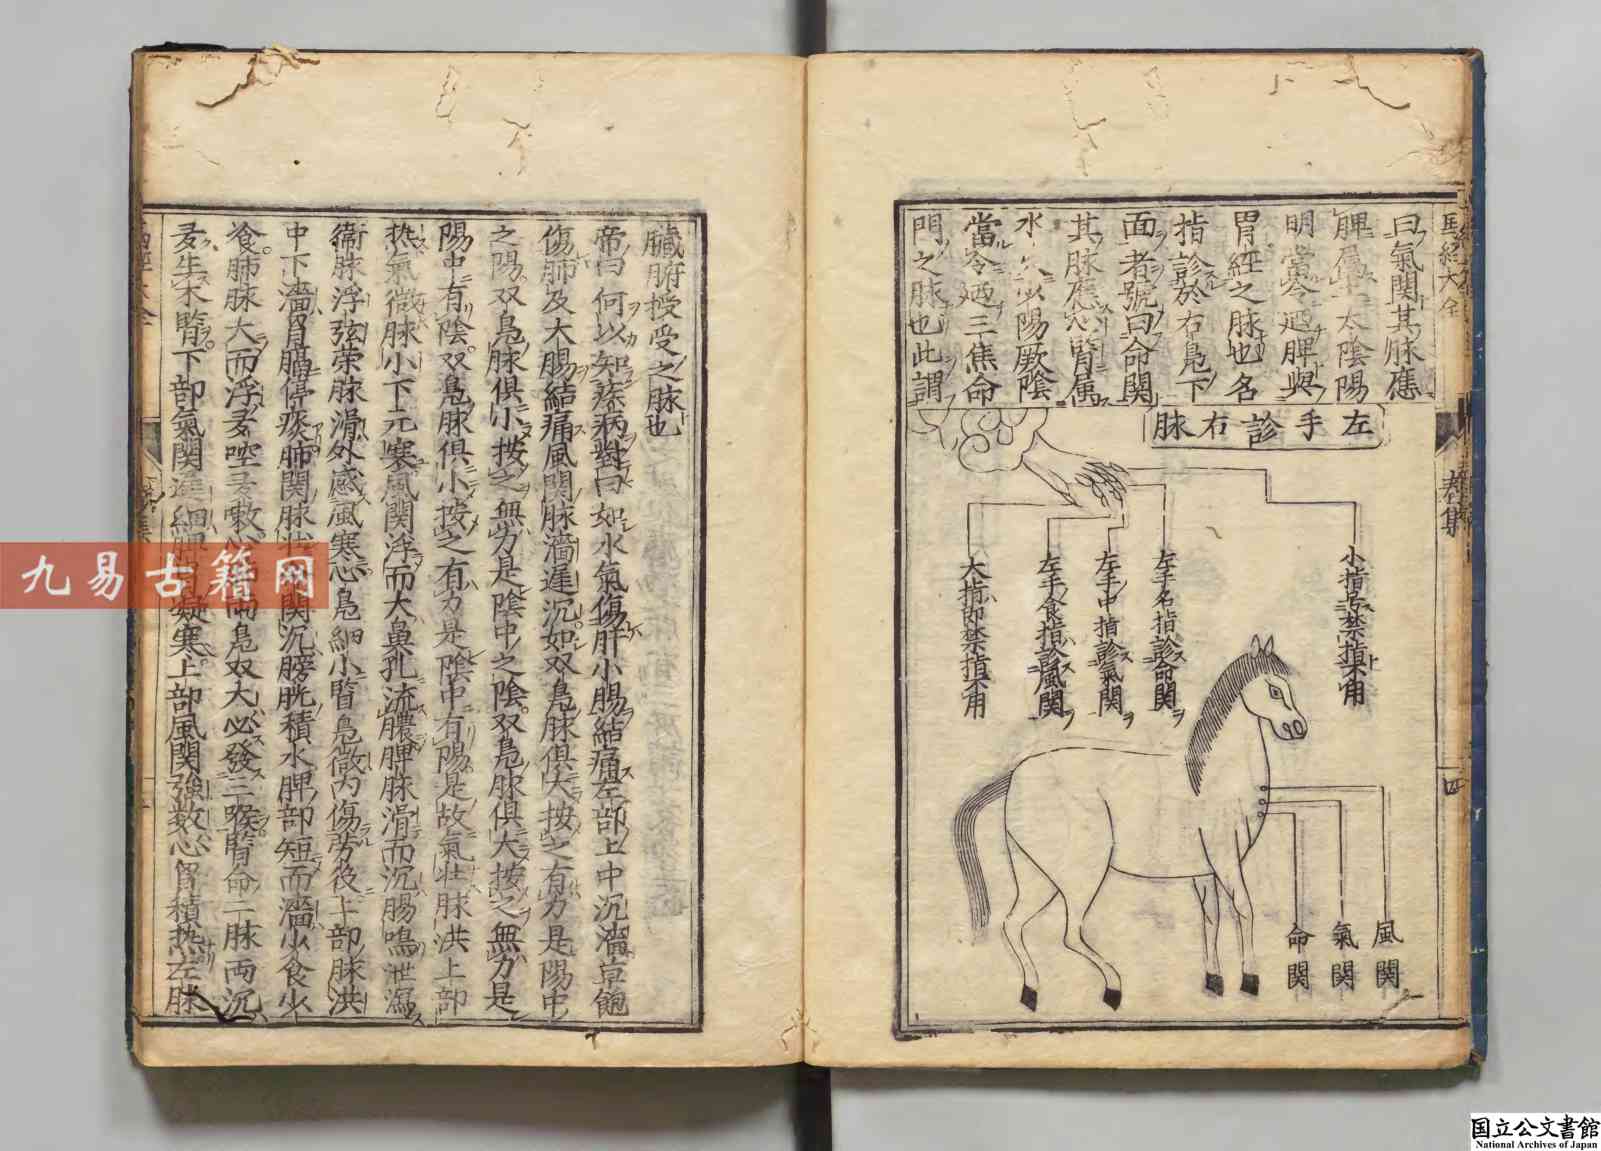 馬經大全
春集
四
曰氣関其脉應
脾屬土太陰陽
明當令廼脾與
胃經之脉也名
指診於右鳬下
面者號曰命関
其脉應於腎属
水火少陽厥陰
當令廼三焦命
門之脉也此謂
左手診右脉
小指禁揁不用
左手名指診命関
左手中指診氣関
左手食指診風関
大指即禁揁不用
風関
氣関
命関
臓腑授受之脉也
帝曰何以知蔠病對曰如水氣傷肝小腸結痛左部上中沉濇草飽
傷肺及大腸結痛風関脉濇遲沉如双鳬脉俱大按之有力是陽中
之陽双鳬脉俱小按之無力是陰中之陰双鳬脉俱大按之無力是
陽中有陰双鳬脉俱小按之有力是陰中有陽是故氣壮脉洪上部
热氣微脉小下元寒風関浮而大鼻孔流膿脾脉滑而沉腸鳴泄瀉
衛脉浮弦荣脉滑外感風寒心鳬細小腎鳬微内傷劳後上部脉洪
中下濇胃膈停痰肺関脉壮関沉膀胱積水脾部短而濇少食少
飧肺脉大而浮多啌多嗽心而鳬双大必發三喉腎命二脉両沉
多生木腎下部氣関遲細凝寒上部風関強数心胃積热左脉
九易古籍网
国立公文書館
National Archives of Japan